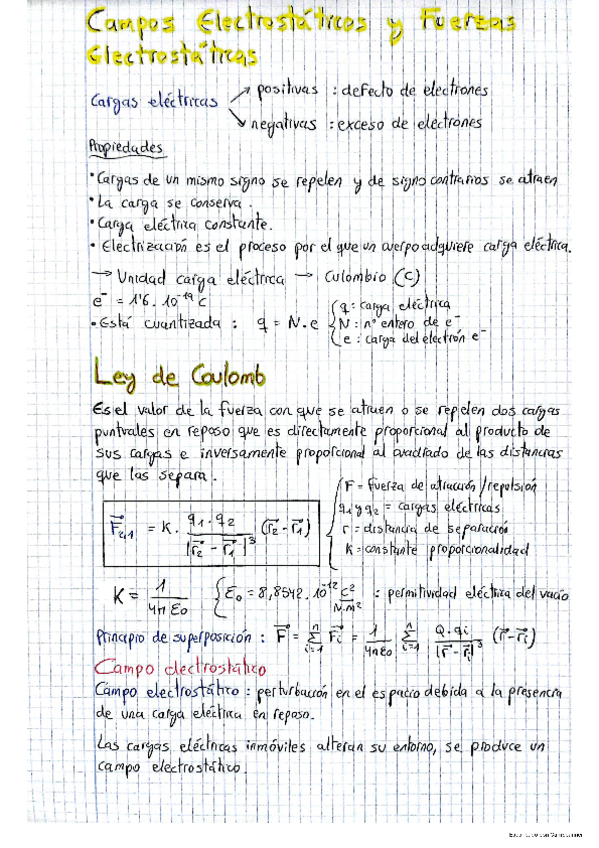 Campos Electrostáticos y Fuerzas
Electrostáticas
Cargas eléctricas
positivas : defecto de electrones
negativas : exceso de electrones
Propiedades
• Cargas de un mismo signo se repelen y de signo contrarios se atraen
• La carga se conserva.
• Carga eléctrica constante.
• Electrización es el proceso por el que un cuerpo adquiere carga eléctrica.
→ Unidad carga eléctrica → Culombio (C)
e⁻ = 1'6 . 10⁻¹⁹ C
• Está cuantizada : q = N . e
q : carga eléctrica
N : nº entero de e⁻
e : carga del electrón e⁻
Ley de Coulomb
Es el valor de la fuerza con que se atraen o se repelen dos cargas
puntuales en reposo que es directamente proporcional al producto de
sus cargas e inversamente proporcional al cuadrado de las distancias
que las separa.
= K . q1 . q2 / |r⃗2 - r⃗1|³ (r⃗2 - r⃗1)
F = fuerza de atracción/repulsión
q1 y q2 = cargas eléctricas
r = distancia de separación
K = constante proporcionalidad
K = 1 / 4πε0
ε0 = 8,8542 . 10⁻¹² C² / N.m² : permitividad eléctrica del vacío
Principio de superposición : F⃗ = Σ(i=1, n) F⃗i = 1 / 4πε0 Σ(i=1, n) Q . qi / |r⃗ - r⃗i|³ (r⃗ - r⃗i)
Campo electrostático
Campo electrostático : perturbación en el espacio debida a la presencia
de una carga eléctrica en reposo.
Las cargas eléctricas inmóviles alteran su entorno, se produce un
campo electrostático.